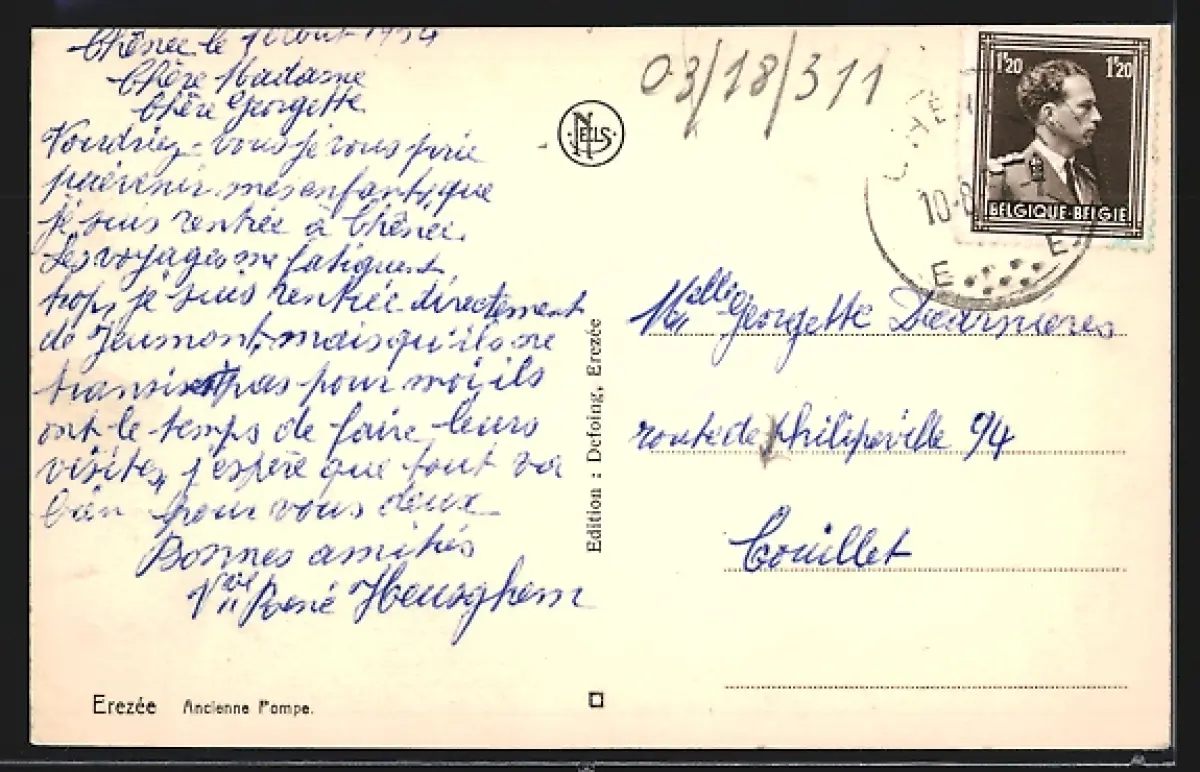 Chênée le 1 Août 1954
Chère Madame
Chère Georgette
Voudriez-vous je vous prie
prévenir mes enfants, que
je suis rentrée à Chênée.
Les voyages me fatiguent
trop, je suis rentrée directement
de Jeumont, mais qu'ils ne
pas pour moi, ils
ont le temps de faire leurs
visites, j'espère que tout va
bien pour vous deux
Bonnes amitiés
Vve René Heusghem
Erezée Ancienne Pompe.
NELS
Edition : Defoing, Erezée
03/18/311
1'20 1'20
BELGIQUE·BELGIE
10-8
E E
Melle Georgette
route de Philipeville 94
Couillet